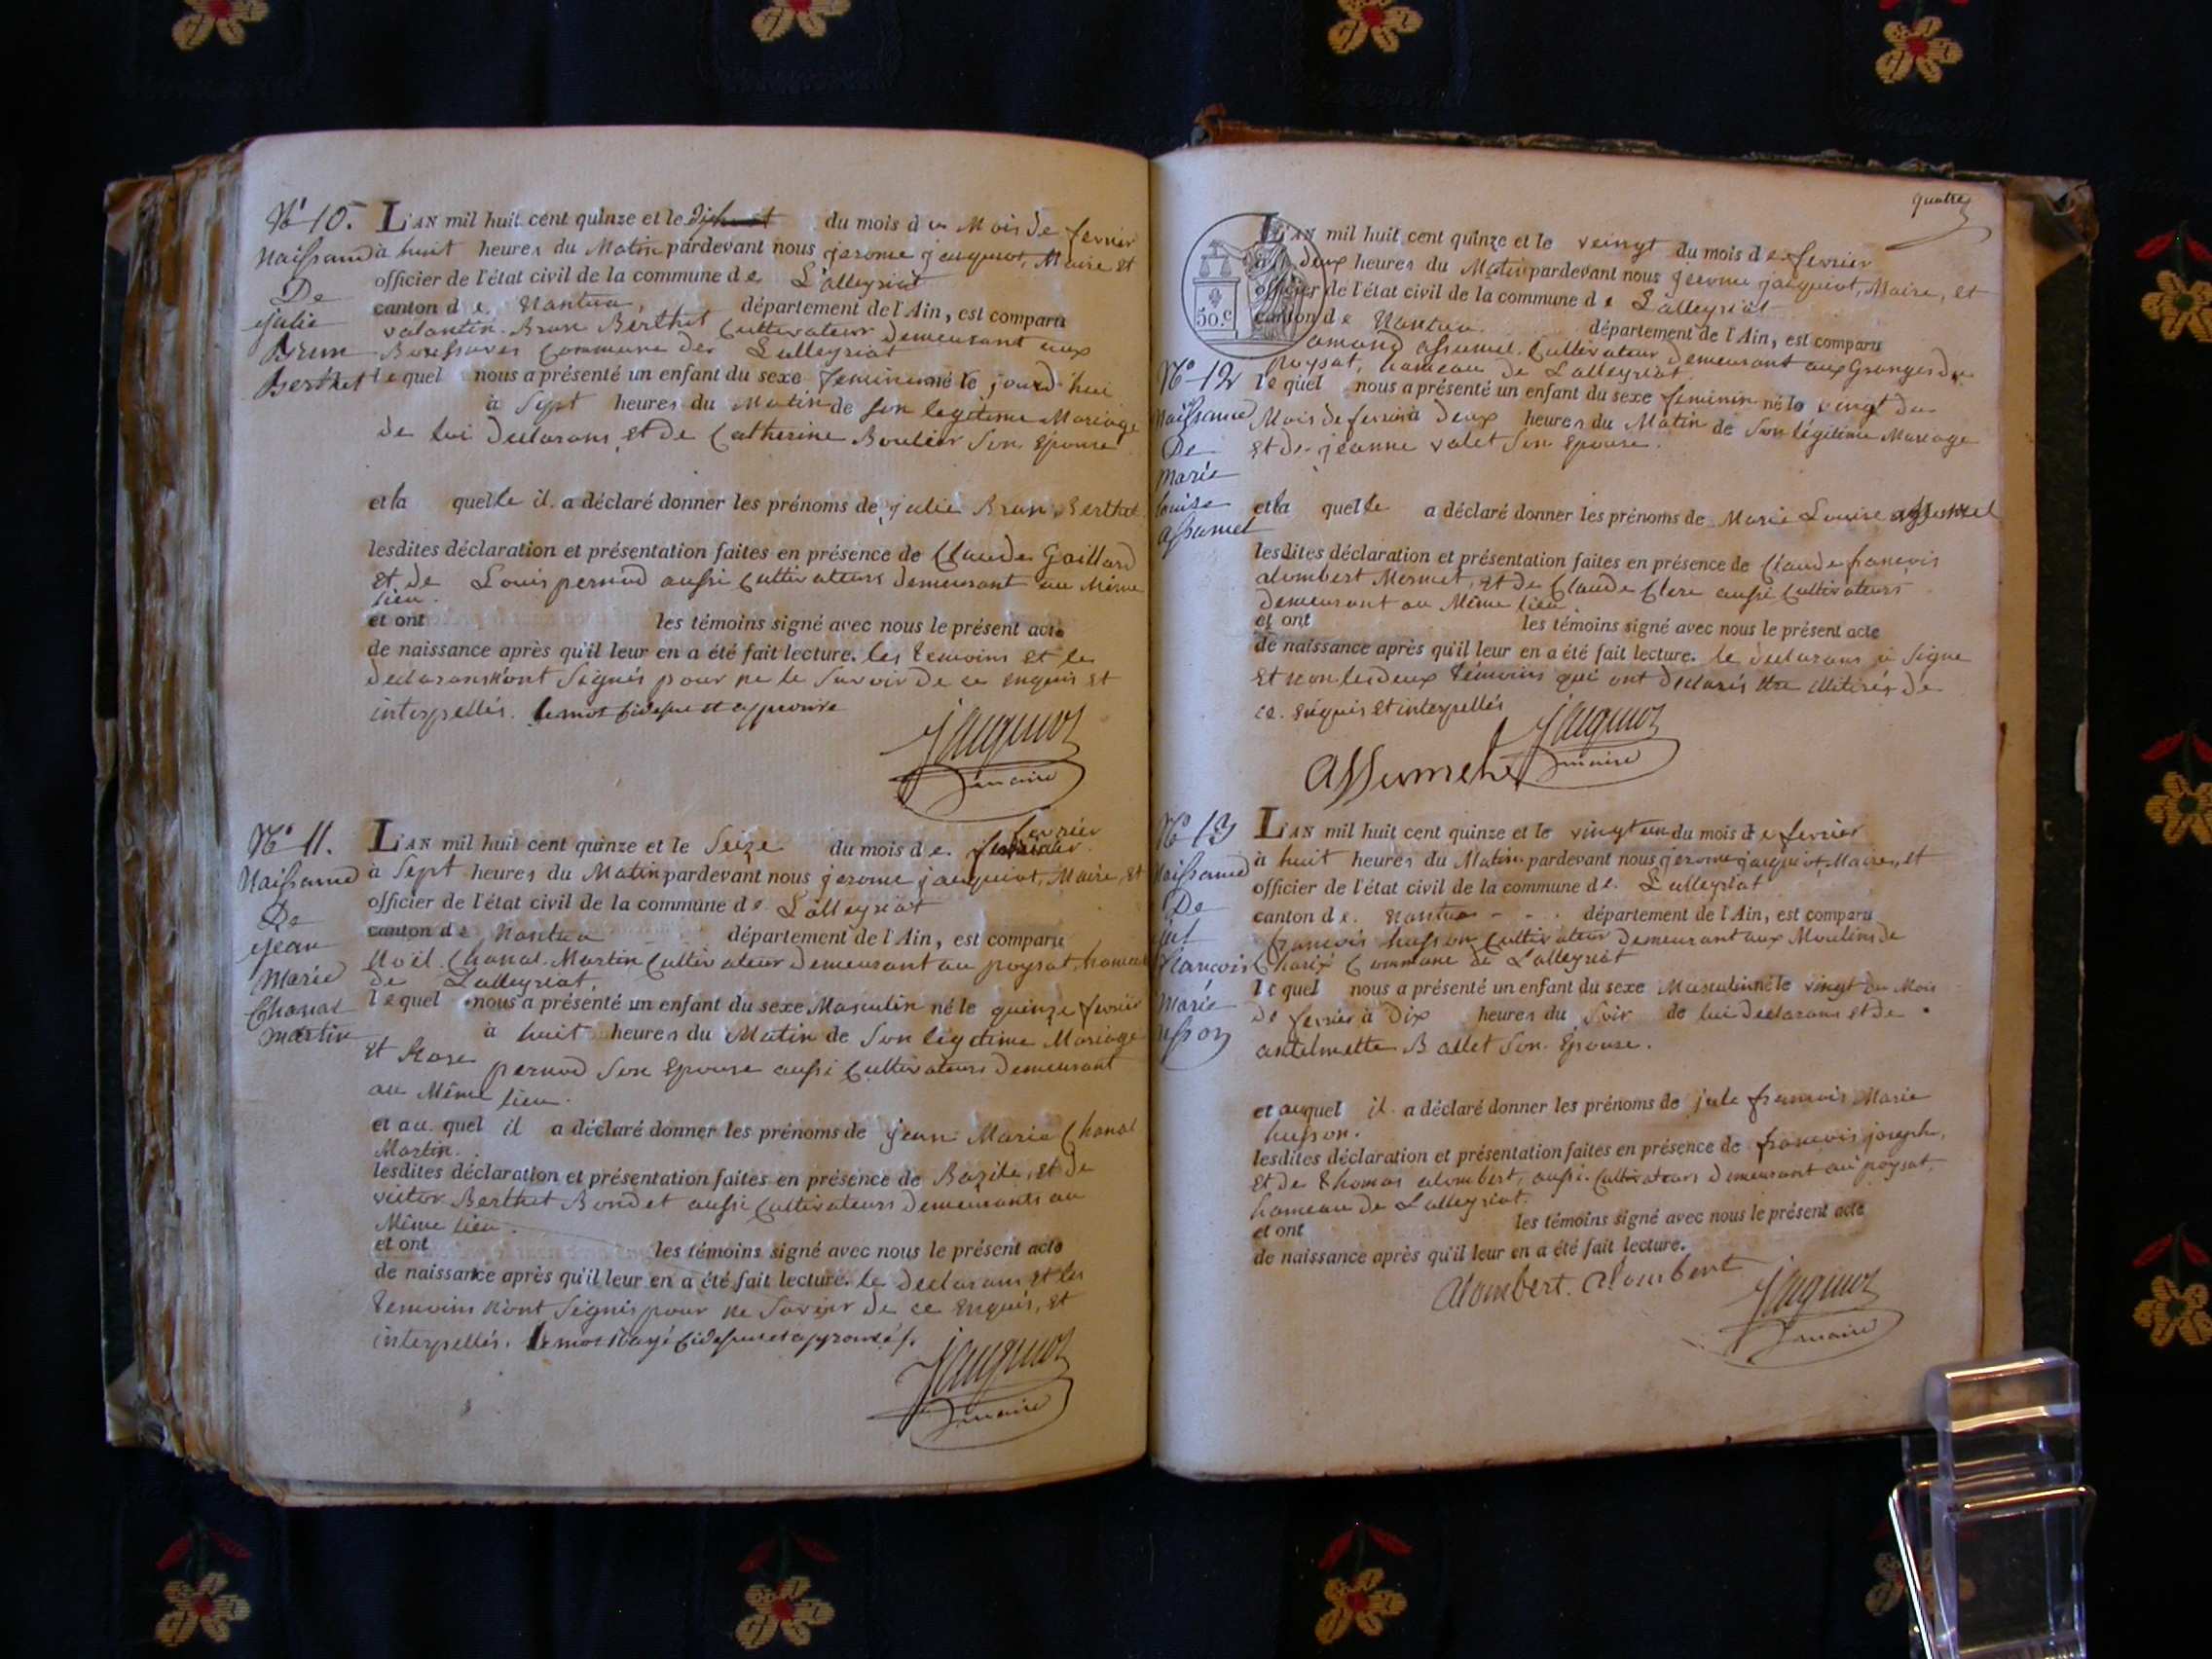 N° 10.
Naissance
De
julie
Brun
Berthet
L'AN mil huit cent quinze et le du mois d u Mois de fevrier
à huit heures du Matin pardevant nous jerome jacquiot, Maire et
officier de l'état civil de la commune de L'alleyriat
canton de Nantua, département de l'Ain, est comparu
valantin Brun Berthet Cultivateur demeurant aux
commune de L'alleyriat
lequel nous a présenté un enfant du sexe feminin né le jourd'hui
à Sept heures du Matin de son legetime Mariage
de lui declarans et de Catherine Boulier son epouse
et la quelle il a déclaré donner les prénoms de julie Brun Berthet
lesdites déclaration et présentation faites en présence de Claude Gaillard
et de Louis pernod aussi cultivateurs demeurant au Même
lieu.
et ont les témoins signé avec nous le présent acte
de naissance après qu'il leur en a été fait lecture. les temoins et le
declarans n'ont Signés pour ne le savoir de ce enquis et
interpellés. le mot
Jacquiot
maire
N° 11.
Naissance
De
jean
Marie
Chanal
martin
L'AN mil huit cent quinze et le Seize du mois de fevrier
à Sept heures du Matin pardevant nous jerome jacquiot, Maire, et
officier de l'état civil de la commune de L'alleyriat
canton de Nantua département de l'Ain, est comparu
Noël Chanal Martin Cultivateur demeurant au poysat, hameau
de L'alleyriat,
lequel nous a présenté un enfant du sexe Masculin né le quinze fevrier
à huit heures du Matin de Son legetime Mariage
et Rose pernod Son Epouse aussi Cultivateurs demeurant
au Même lieu.
et au quel il a déclaré donner les prénoms de jean Marie Chanal
Martin.
lesdites déclaration et présentation faites en présence de Bazile, et de
victor Berthet Bondet aussi Cultivateurs demeurants au
Même lieu.
et ont les témoins signé avec nous le présent acte
de naissance après qu'il leur en a été fait lecture. le declarans et les
temoins n'ont Signés pour ne Savoir de ce enquis, et
interpellés. le mot Rayé
Jacquiot
maire
quatre
50.c
N° 12
Naissance
De
marie
louise
assumel
L'AN mil huit cent quinze et le veingt du mois de fevrier
deux heures du Matin pardevant nous jerome jacquiot, Maire, et
officier de l'état civil de la commune de L'alleyriat
canton de Nantua. département de l'Ain, est comparu
amand assumel Cultivateur demeurant aux Granges du
poysat, hameau de L'alleyriat
lequel nous a présenté un enfant du sexe feminin né le vingt du
Mois de fevrier à deux heures du Matin de Son légitime Mariage
et de jeanne valet Son Epouse.
et la quelle a déclaré donner les prénoms de Marie Louise assumel
lesdites déclaration et présentation faites en présence de Claude françois
alombert Mermet, et de Claude Clerc aussi Cultivateurs
demeurant au Même lieu
et ont les témoins signé avec nous le présent acte
de naissance après qu'il leur en a été fait lecture. le declarans a Signe
et non les deux témoins qui ont declarés être illitérés de
ce. enquis et interpellés
Jacquiot
maire
N° 13
Naissance
De
jul
francois
Marie
usson
L'AN mil huit cent quinze et le vingt un du mois de fevrier
à huit heures du Matin pardevant nous jerome jacquiot, Maire, et
officier de l'état civil de la commune de L'alleyriat
canton de Nantua département de l'Ain, est comparu
francois husson Cultivateur demeurant aux Moulins de
Charix Commune de L'alleyriat
lequel nous a présenté un enfant du sexe Masculin né le vingt du Mois
de fevrier à Dix heures du Soir de lui declarans et de
antelmette Ballet Son Epouse.
et auquel il a déclaré donner les prénoms de jule francois Marie
husson.
lesdites déclaration et présentation faites en présence de francois joseph,
et de thomas alombert, aussi Cultivateurs demeurant au poysat,
hameau de L'alleyriat.
et ont les témoins signé avec nous le présent acte
de naissance après qu'il leur en a été fait lecture.
Alombert. Alombert
Jacquiot
maire